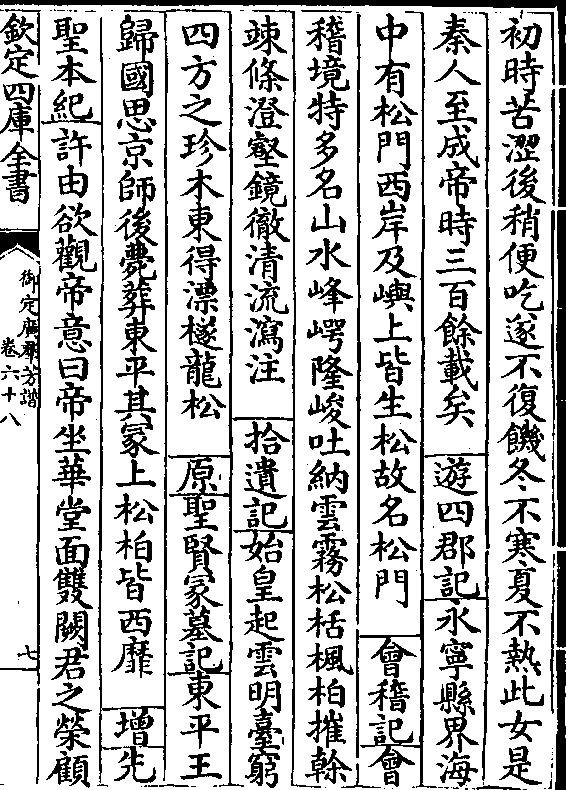 初時苦澀後稍便吃遂不復饑冬不寒夏不熱此女是
秦人至成帝時三百餘載矣 遊四郡記永寧縣界海
中有松門西岸及嶼上皆生松故名松門 會稽記會
稽境特多名山水峰崿隆峻吐納雲霧松栝楓柏擢榦
竦條澄壑鏡徹清流瀉注 拾遺記始皇起雲明臺窮
四方之珍木東得漂檖龍松 原聖賢冢墓記東平王
歸國思京師後薨葬東平其冢上松柏皆西靡 增先
聖本紀許由欲觀帝意曰帝坐華堂面雙闕君之榮顧
欽定四庫全書
御定廣羣芳譜
卷六十八
七